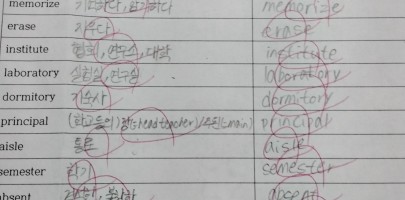 memorize 기억하다, 암기하다 memorize
erase 지우다 erase
institute 협회, 연구소, 대학 institute
laboratory 실험실, 연구실 laboratory
dormitory 기숙사 dormitory
principal (학교 등의) 장(=head teacher)/주된(=main) principal
aisle 통로 aisle
semester 학기 semester
absent absent